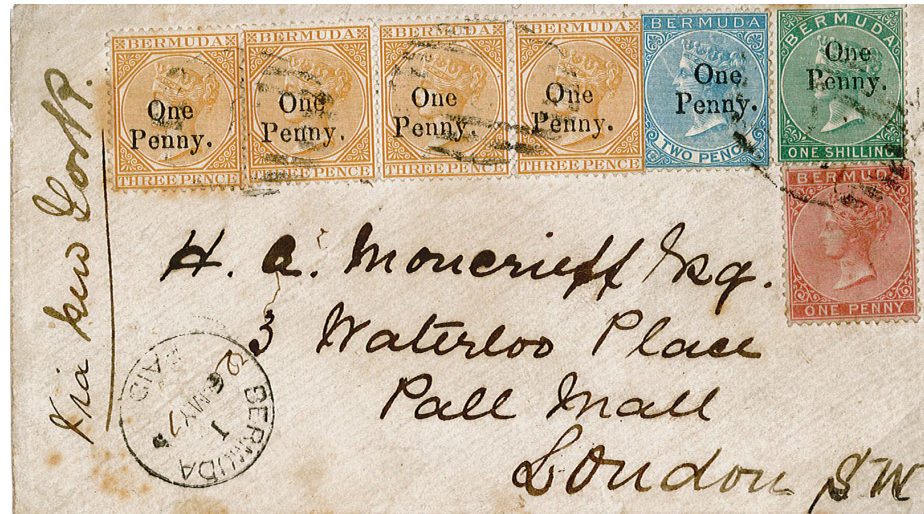 BERMUDA
One
Penny.
THREE PENCE
BERMUDA
One
Penny.
THREE PENCE
BERMUDA
One
Penny.
THREE PENCE
BERMUDA
One
Penny.
THREE PENCE
BERMUDA
One
Penny.
TWO PENCE
BERMUDA
One
Penny.
ONE SHILLING
BERMUDA
ONE PENNY
Via
H. A. Moncrieff Esq.
3 Waterloo Place
Pall Mall
London SW
PAID
MY
BERMUDA